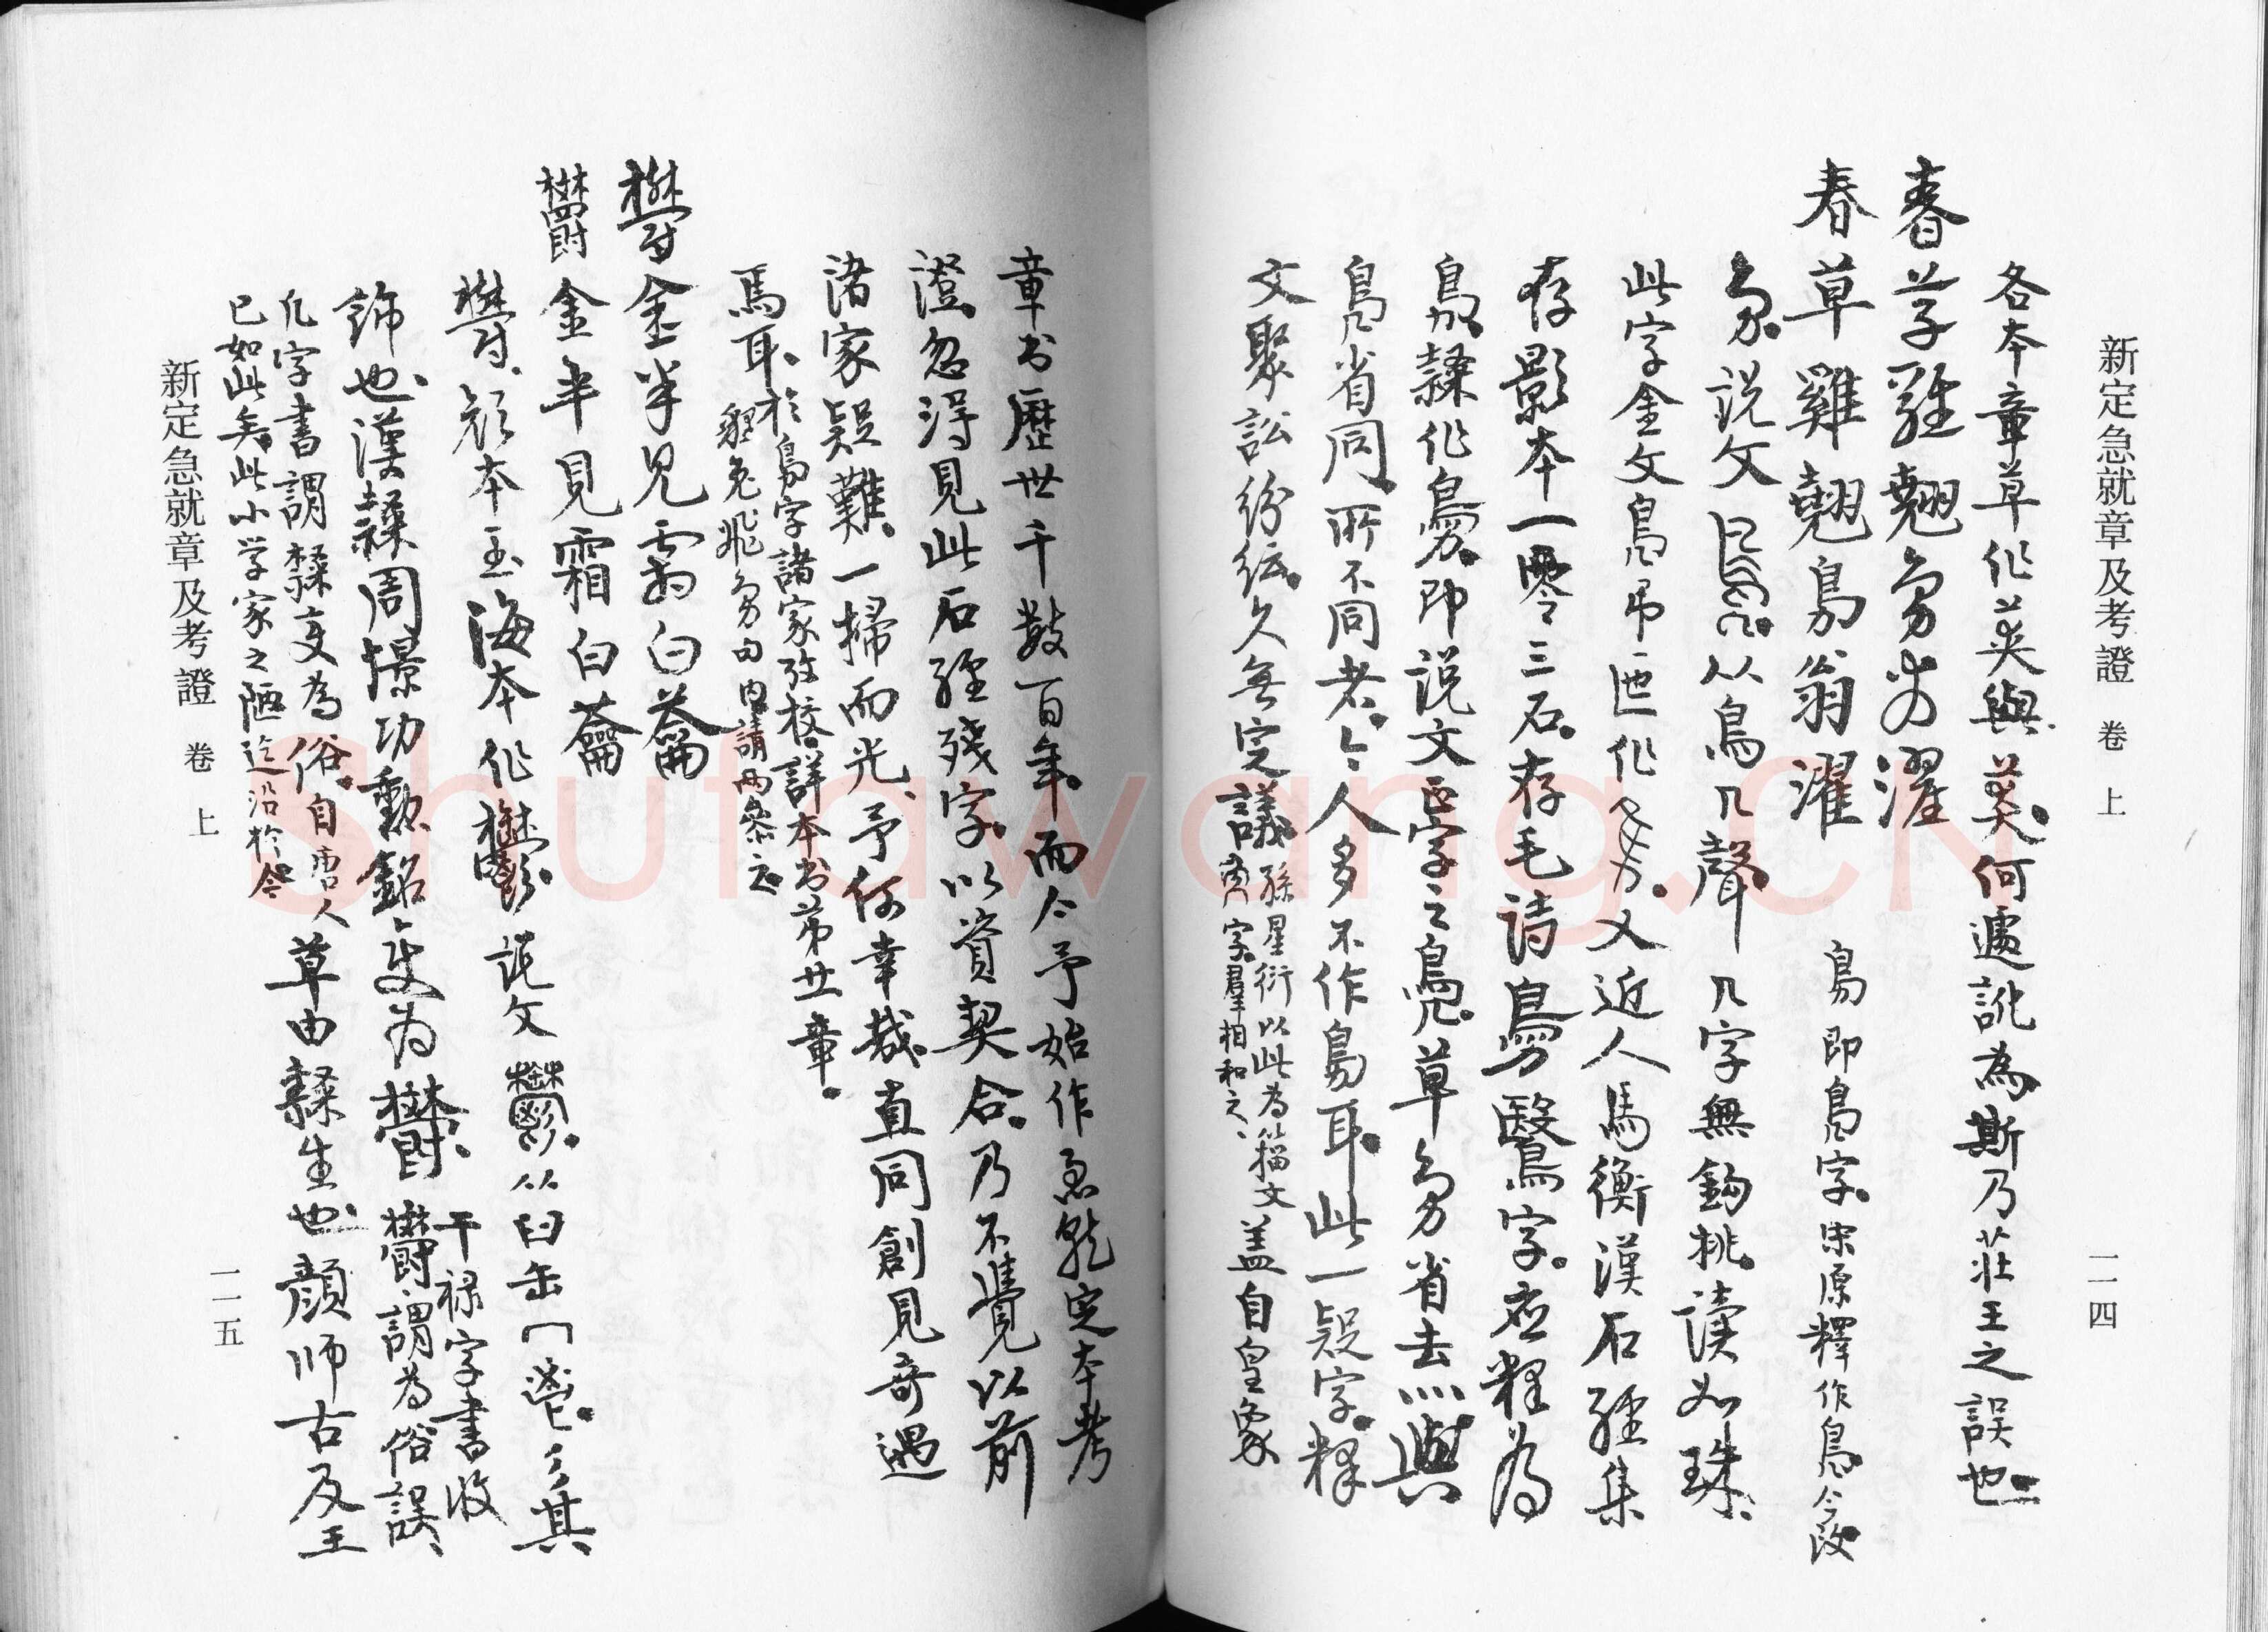 新定急就章及考證 卷上
一一四
各本章草作英與葜何遽訛為斯乃莊王之誤也
春草雞翹鳧翁濯
春草雞翹鳧翁濯 鳧即鳧字宋原釋作鳧今改
鳧說文从鳥几聲几字無鈎挑讀如珠
此字金文鳧弔匜作又近人馬衡漢石經集
存影本一零三石存毛詩鳧鷖字應釋為
鳧隸作鳧即說文正字之鳧草鳧省去灬與
鳧省同所不同者今人多不作鳧耳此一疑字釋
文聚訟紛紜久無定議孫星衍以此為籀文
字羣相和之蓋自皇象
章书歷世千數百年而今予始作急就定本考
證忽得見此石經殘字以資契合乃不覺以前
諸家疑難一掃而光予何幸哉直同創見奇遇
焉耳於鳧字諸家攷校詳本书第廿章
貍兔飛鳧句內請兩叅之
鬱金半見霜白䔵
鬱金半見霜白䔵
鬱顏本玉海本作鬱說文鬱从臼缶冖鬯彡其
飾也漢隸周憬功勳銘變為欝干祿字書收
欝謂為俗誤
凡字書謂隸变為俗自唐人
已如此矣此小学家之陋迄沿於今
草由隸生也顏师古及王
新定急就章及考證 卷上
一一五